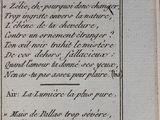 « Zélie, eh pourquoi donc changer,
Trop ingrate envers la nature,
L'ébène de ta chevelure,
Contre un ornement étranger ?
Ton œil noir trahit le mistère
De ces dehors fallacieux :
Quand l'amour t'a donné ses yeux,
N'en as-tu pas assez pour plaire ?
Air : La Lumière la plus pure.
« Mais de Pallas trop sévère,